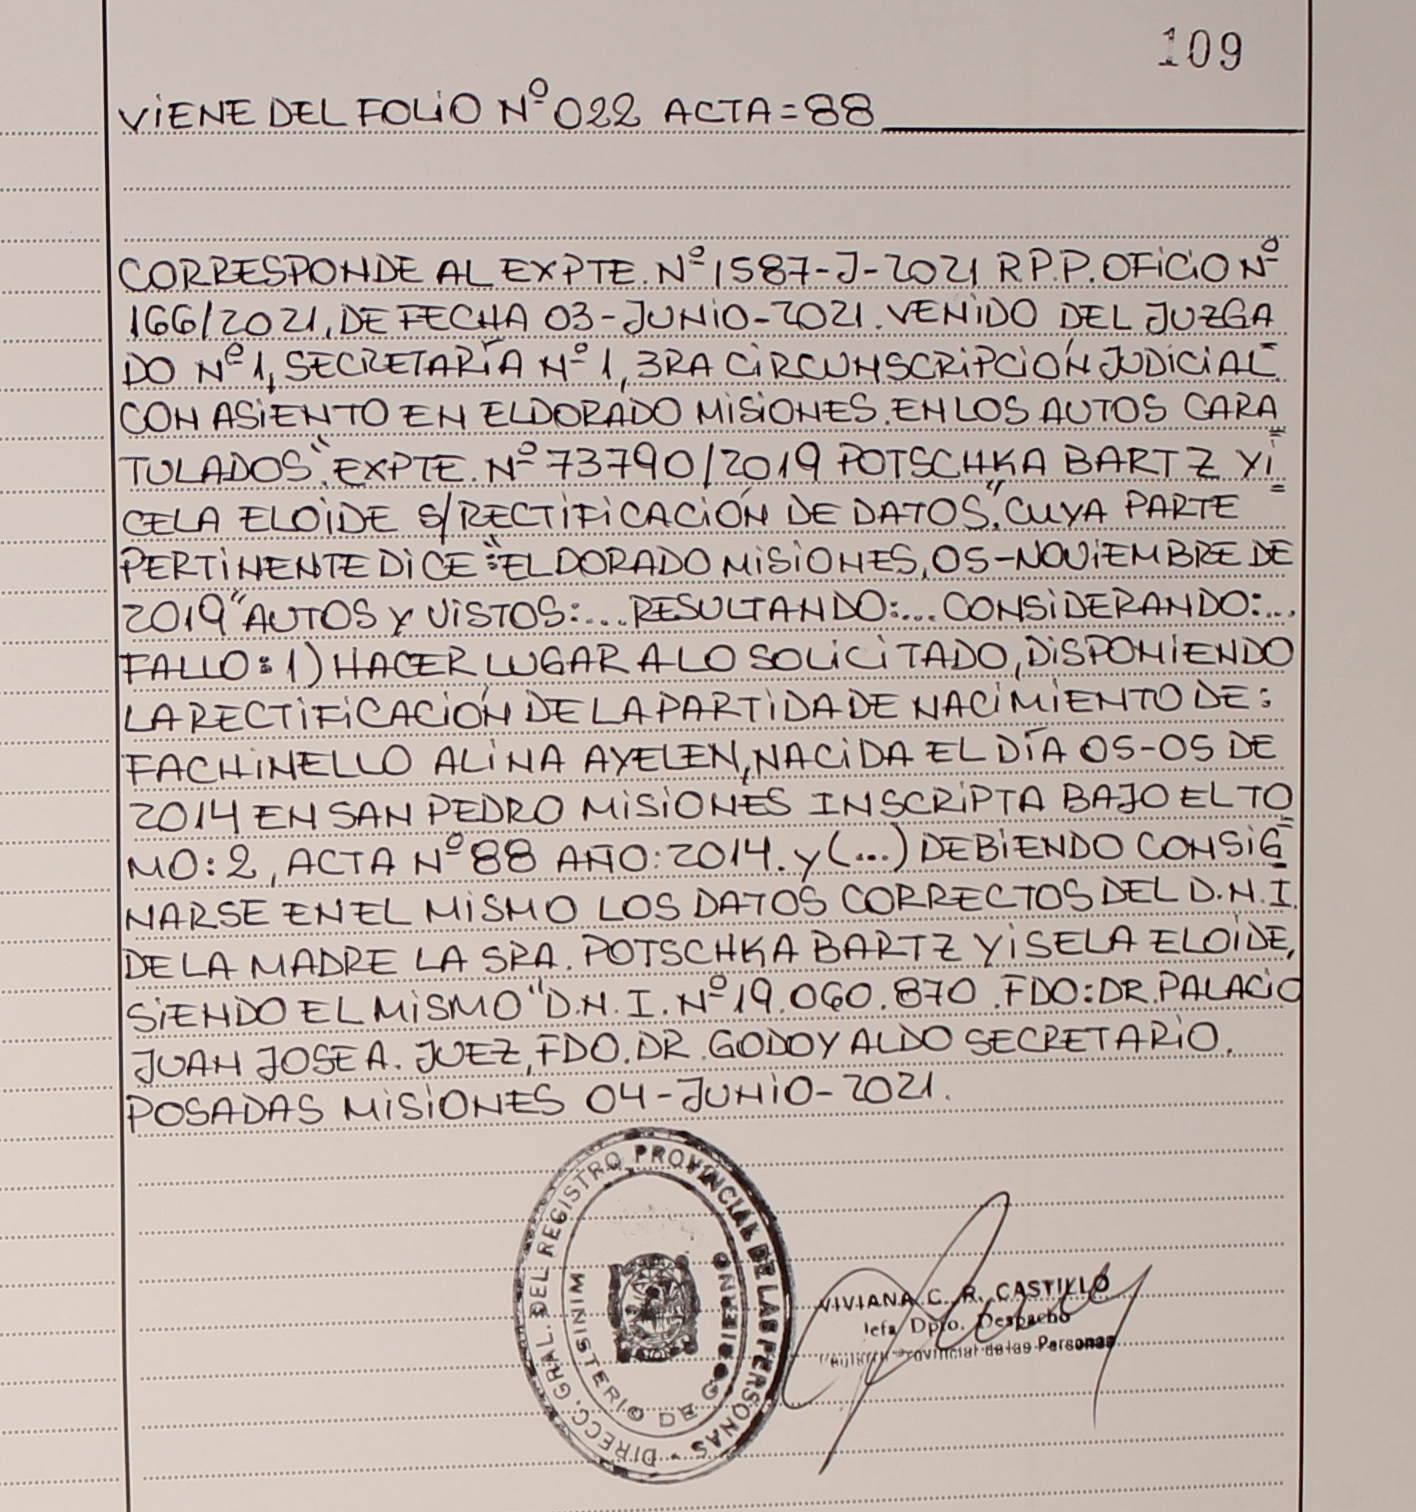 109
VIENE DEL FOLIO Nº 022 ACTA = 88
CORRESPONDE AL EXPTE. Nº 1587-J-2021 R.P.P. OFICIO Nº
166/2021, DE FECHA 03-JUNIO-2021. VENIDO DEL JUZGA
DO Nº 1, SECRETARÍA Nº 1, 3RA CIRCUNSCRIPCIÓN JUDICIAL
CON ASIENTO EN ELDORADO MISIONES. EN LOS AUTOS CARA
TULADOS "EXPTE. Nº 73790/2019 POTSCHKA BARTZ YI
CELA ELOIDE S/RECTIFICACIÓN DE DATOS". CUYA PARTE
PERTINENTE DICE: "ELDORADO MISIONES, 05-NOVIEMBRE DE
2019" AUTOS Y VISTOS:... RESULTANDO:... CONSIDERANDO:...
FALLO: 1) HACER LUGAR A LO SOLICITADO, DISPONIENDO
LA RECTIFICACIÓN DE LA PARTIDA DE NACIMIENTO DE:
FACHINELLO ALINA AYELEN, NACIDA EL DÍA 05-05 DE
2014 EN SAN PEDRO MISIONES INSCRIPTA BAJO EL TO
MO: 2, ACTA Nº 88 AÑO: 2014. Y (...) DEBIENDO CONSIG
NARSE EN EL MISMO LOS DATOS CORRECTOS DEL D.N.I.
DE LA MADRE LA SRA. POTSCHKA BARTZ YISELA ELOIDE,
SIENDO EL MISMO "D.N.I. Nº 19.060.870. FDO: DR. PALACIO
JUAN JOSE A. JUEZ, FDO. DR. GODOY ALDO SECRETARIO.
POSADAS MISIONES 04-JUNIO-2021.
DIRECC. GRAL. DEL REGISTRO PROVINCIAL DE LAS PERSONAS
MINISTERIO DE GOBIERNO
VIVIANA C. R. CASTILLO
Jefa Dpto. Despacho
Provincial de las Personas